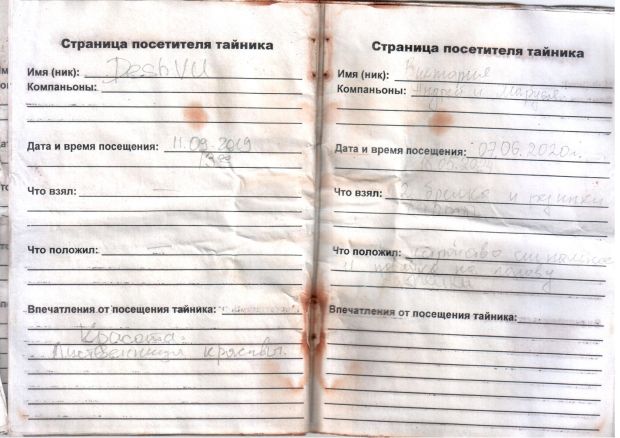 Страница посетителя тайника
Имя (ник): DeshVU
Компаньоны:
Дата и время посещения: 11.09.2019
Что взял:
Что положил:
Впечатления от посещения тайника:
Красота.
Лиственницы красивы.
Страница посетителя тайника
Имя (ник): Виктория
Компаньоны: Андрей и Маруся
Дата и время посещения: 07.06.2020г.
Что взял: 2 брелка и резинки
Что положил:
и на голову
Впечатления от посещения тайника: